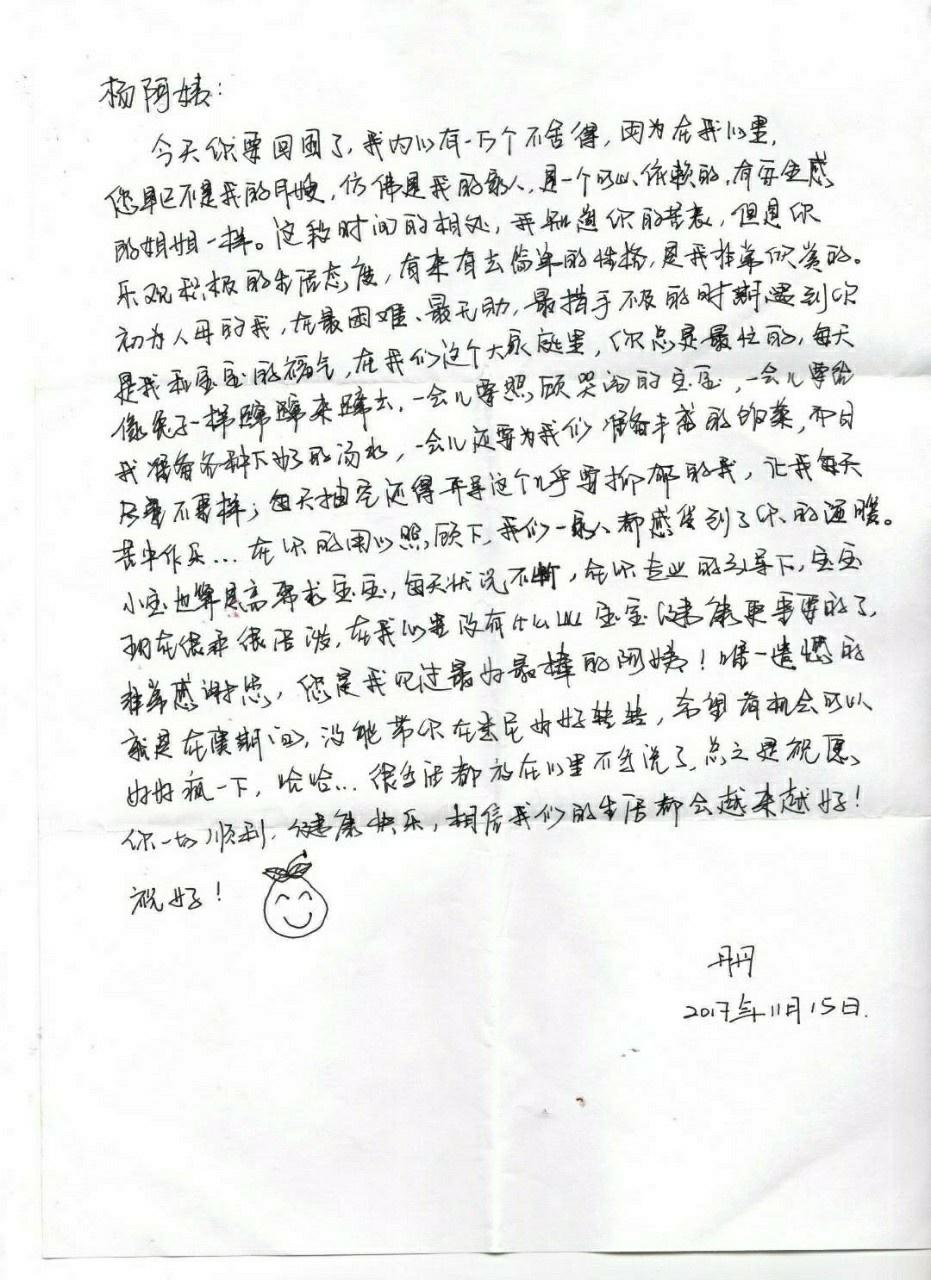 杨阿姨:
今天你要回国了,我内心有一万个不舍得,因为在我心里,
您早已不是我的月嫂,仿佛是我的家人,是一个可以依赖的,有安全感
的姐姐一样。这段时间的相处,我知道你的苦衷,但是你
乐观积极的生活态度,有来有去简单的性格,是我非常欣赏的。
初为人母的我,在最困难、最无助,最措手不及的时期遇到你
是我和宝宝的福气,在我们这个大家庭里,你总是最忙的,每天
像兔子一样蹿蹿来蹿去,一会儿要照顾哭闹的宝宝,一会儿要给
我准备各种下奶的汤水,一会儿还要为我们准备丰盛的饭菜,而且
尽量不重样;每天抽空还得开导这个几乎要抑郁的我,让我每天
苦中作乐...在你的用心照顾下,我们一家人都感受到了你的温暖。
小宝也算是高需求宝宝,每天状况不断,在你专业的引导下,宝宝
现在很乖很活泼,在我心里没有什么比宝宝健康更重要的了,
非常感谢您,您是我见过最好最棒的阿姨!唯一遗憾的
就是在澳期间,没能带你在悉尼好好转转,希望有机会可以
好好疯一下,哈哈...很多话都放在心里不多说了,总之是祝愿
你一切顺利,健康快乐,相信我们的生活都会越来越好!
祝好!
丹丹
2017年11月15日.